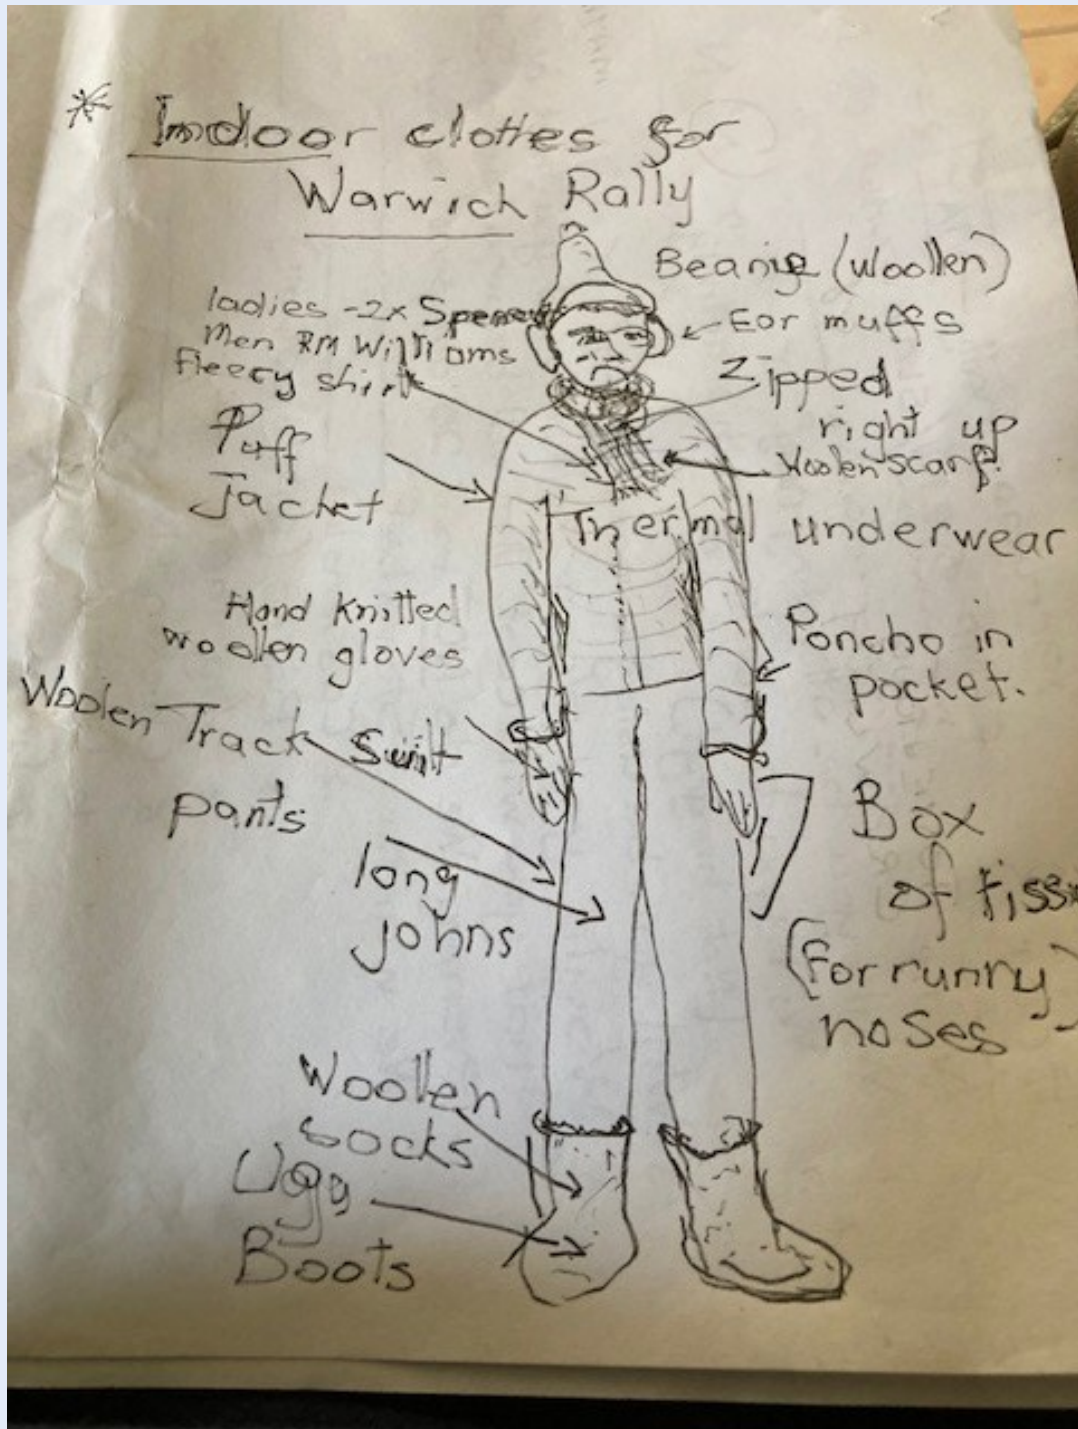 * Indoor clothes for
Warwich Rally
Beanie (woollen)
Ear muffs
ladies -2x Spencers
Men RM Williams
fleecy shirt
Zipped
right up
Woolen scarf
Puff
Jacket
Thermal underwear
Hand Knitted
woollen gloves
Poncho in
pocket.
Woolen Track Suit
pants
Box
of tiss
(For runny)
noses
long
johns
Woollen
socks
Ugg
Boots